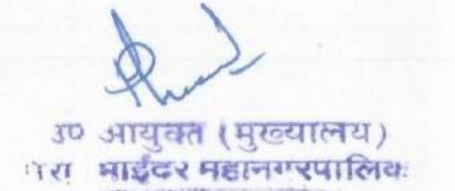 उप आयुक्त (मुख्यालय)
भाईंदर महानगरपालिक